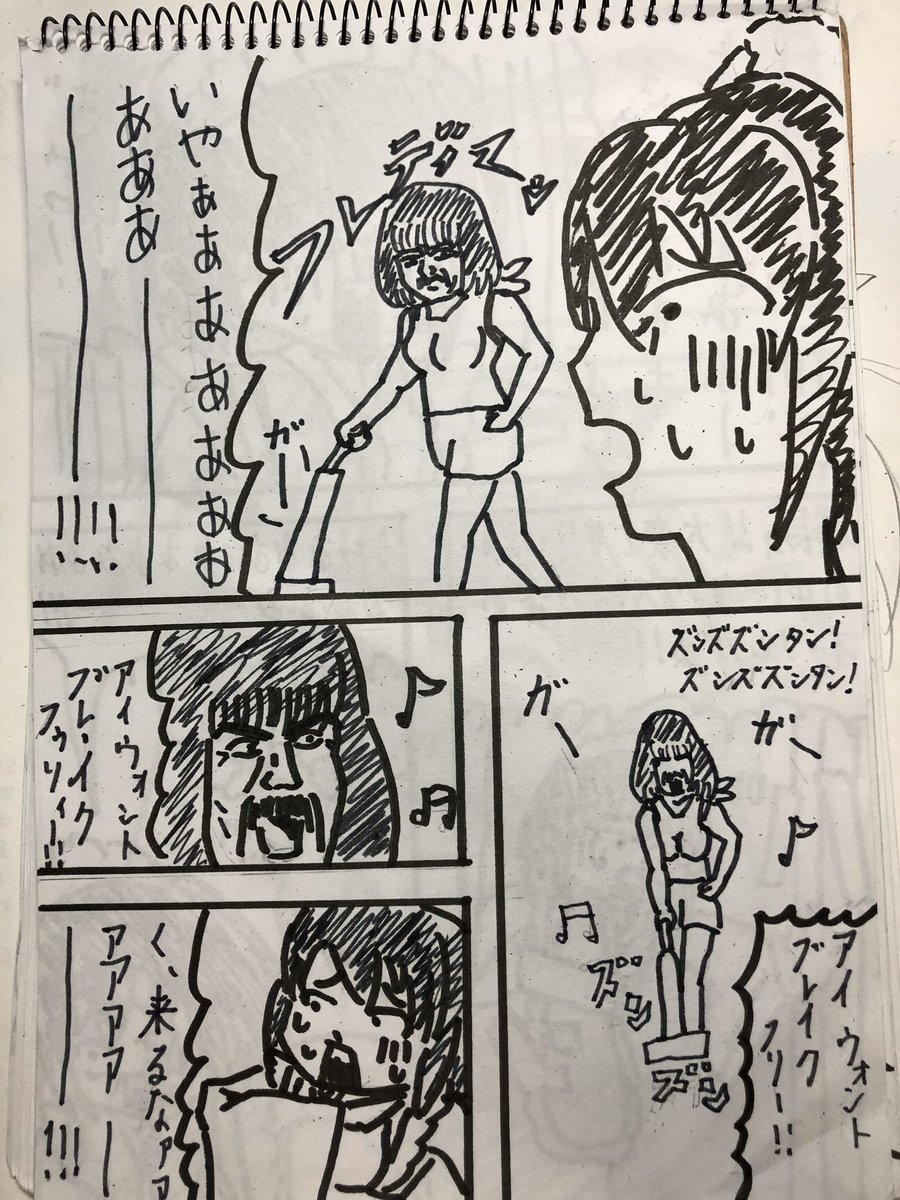 フレディマッ
ガーッ
いやぁぁぁぁぁぁぁ
あああー
ー!!!!
ズンズズンタン!
ズンズズンタン!
ガー
ガー
ズン
ズン
アイ ウォント
ブレイク
フリー!!
アイ ウォント
ブレ、イク
フゥリィー!!
く、来るなァァ
アアアアー
ー!!!